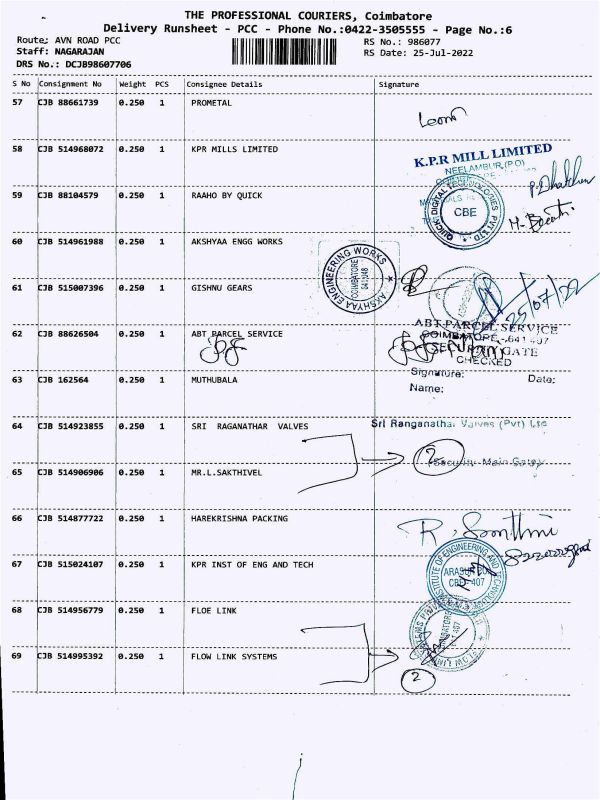 THE PROFESSIONAL COURIERS, Coimbatore
Delivery Runsheet - PCC - Phone No.:0422-3505555 - Page No.:6
Route: AVN ROAD PCC
RS No.: 986077
Staff: NAGARAJAN
RS Date: 25-Jul-2022
DRS No.: DCJB98607706
S No Consignment No Weight PCS Consignee Details Signature
57 CJB 88661739 0.250 1 PROMETAL
58 CJB 514968072 0.250 1 KPR MILLS LIMITED
K.P.R MILL LIMITED
NEELAMBUR (P.O)
59 CJB 88104579 0.250 1 RAAHO BY QUICK
QUICK DIGITAL TECHNOLOGIES PVT LTD
CBE
60 CJB 514961988 0.250 1 AKSHYAA ENGG WORKS
AKSHYAA ENGINEERING WORKS
COIMBATORE
61 CJB 515007396 0.250 1 GISHNU GEARS
25/07/22
62 CJB 88626504 0.250 1 ABT PARCEL SERVICE
ABT PARCEL SERVICE
COIMBATORE - 641 407
SECURITY GATE
CHECKED
Signature:
Date:
Name:
63 CJB 162564 0.250 1 MUTHUBALA
64 CJB 514923855 0.250 1 SRI RAGANATHAR VALVES
Sri Ranganathar Valves (Pvt) Ltd
2
(Security-Main Gate)
65 CJB 514906906 0.250 1 MR.L.SAKTHIVEL
66 CJB 514877722 0.250 1 HAREKRISHNA PACKING
67 CJB 515024107 0.250 1 KPR INST OF ENG AND TECH
INSTITUTE OF ENGINEERING AND TECHNOLOGY
68 CJB 514956779 0.250 1 FLOE LINK
69 CJB 514995392 0.250 1 FLOW LINK SYSTEMS
2